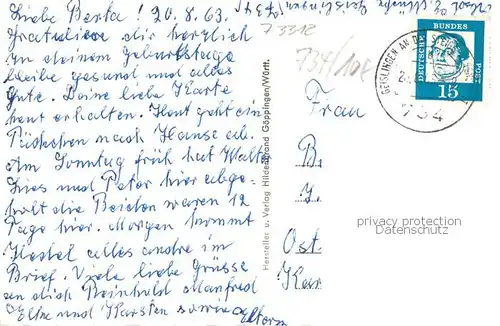 Liebe Berta! 20.8.63.
Gratuliere dir herzlich
zu deinem Geburtstage
bleibe gesund und alles
Gute. Deine liebe Karte
heut erhalten. Heut geht ein
nach Hause ab.
Am Sonntag früh hat Walter
und Peter hier abge-
holt die Beiden waren 12
Tage hier. Morgen kommt
alles andre im
Brief. Viele liebe Grüsse
an dich Reinhold Manfred
Elke und Karsten sowie Eltern
73312
734/108
GEISLINGEN AN DER
734
DEUTSCHE BUNDESPOST
15
Frau
B.
J.
Ost.
Kar
Hersteller u. Verlag Hildenbrand Göppingen/Württ.
privacy protection
Datenschutz